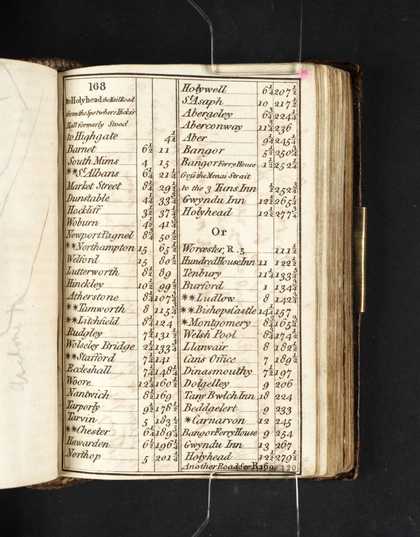 168
to Holyhead the Mail Road
from the Spot where Hicks's
Hall formerly Stood
to Highgate 4 1/2
Barnet 6 1/2 11
South Mims 4 15
**St. Albans 6 1/4 21 1/4
Market Street 8 1/4 29 1/2
Dunstable 4 1/4 33 3/4
Hockliff 3 3/4 37 1/2
Woburn 41 3/4
Newport Pagnel 8 3/4 50 1/2
**Northampton 15 65 1/2
Welford 15 80 1/2
Lutterworth 8 1/2 89
Hinckley 10 1/2 99 1/2
Atherstone 8 107
**Tamworth 8 115
**Litchfield 8 124
Rudgley 7 131
Wolseley Bridge 2 133
**Stafford 7 141
Eccleshall 7 148
Woore 12 160
Nantwich 8 169
Tarporly 9 178
Tarvin 5 183
**Chester 6 189
Hawarden 6 196
Northop 5 201
Holywell 6 207
St. Asaph 10 217
Abergeley 6 224
Aberconway 11 236
Aber 9 245
Bangor 5 250
Bangor Ferry House 1 252
Cross the Menai Strait
to the 3 Tuns Inn 252
Gwyndu Inn 12 265
Holyhead 12 277
Or
Worcester, R. 111
Hundred House Inn 11 122
Tenbury 11 133
Burford 1 134
**Ludlow 8 142
**Bishops Castle 14 157
*Montgomery 8 165
Welsh Pool 8 174
Llanvair 8 182
Cans Office 7 189
Dinasmouthy 7 197
Dolgelley 9 206
Tany Bwlch Inn 18 224
Beddgelert 9 233
*Carnarvon 12 245
Bangor Ferry House 9 254
Gwyndu Inn 13 267
Holyhead 12 279
Another Road see R.